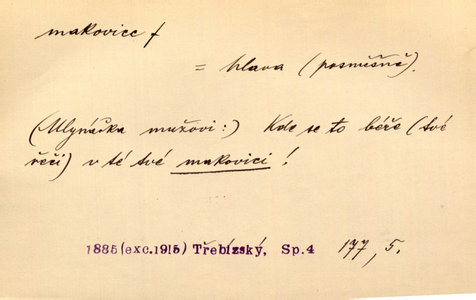 makovice f
= hlava (posměšně).
(Mlynářka mužovi:) Kde se to béře (tvé
řeči) v té tvé makovici!
1885(exc.1915) Třebízský, Sp.4 177, 5.